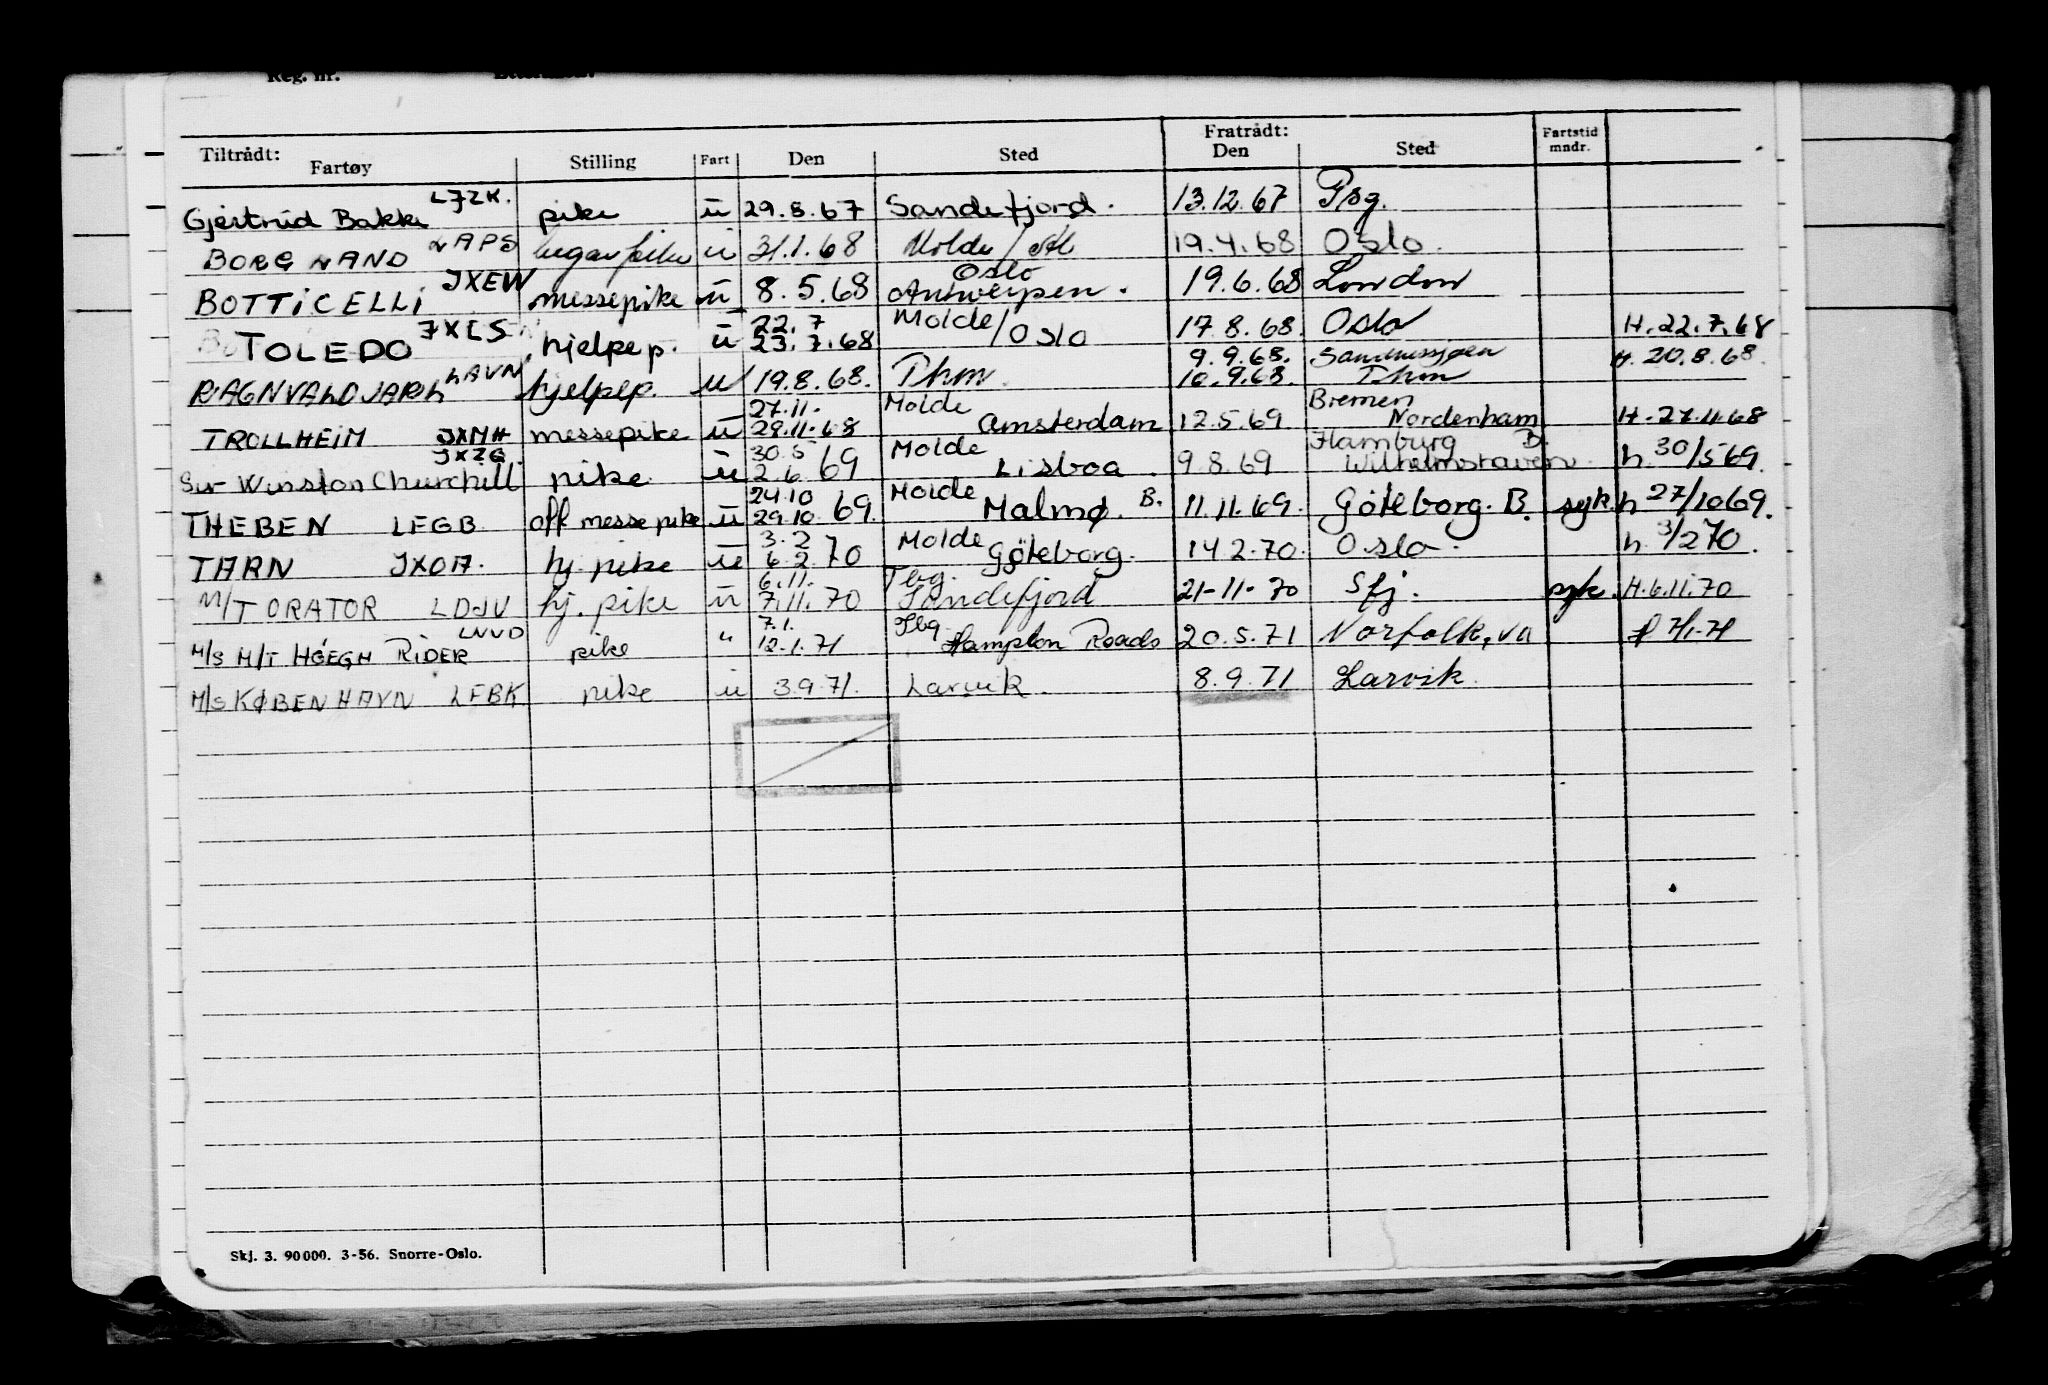 Reg. nr.
Tiltrådt: Fratrådt:
Fartøy Stilling Fart Den Sted Den Sted Fartstid mndr.
Gjertrud Bakke LJZK. pike u 29.8.67 Sandefjord. 13.12.67 Pbg.
BORGLAND LAPS u 31.1.68 Molde / 19.4.68 Oslo.
BOTTICELLI JXEW messepike u 8.5.68 Oslo Antwerpen. 19.6.68 London
TOLEDO JXLS hjelpep. u 22.7 23.7.68 Molde / Oslo 17.8.68. Oslo H. 22.7.68
RAGNVALD JARL LAVN hjelpep. u 19.8.68. Thm. 9.9.68. 10.9.68. Sandnessjøen Thm H. 20.8.68.
TROLLHEIM JXMH messepike u 27.11. 28.11.68 Molde Amsterdam 12.5.69 Bremen Nordenham H. 27.11.68
Sir Winston Churchill JXZG pike u 30.5 2.6. 69 Molde Lisboa. 9.8.69 Hamburg B. Wilhelmshaven. h. 30/5 69.
THEBEN LEGB off messepike u 24.10 29.10. 69. Molde Malmø. B. 11.11.69. Göteborg. B. syk. h 27/10 69.
TARN JXOA. hj. pike u 3.2 6.2. 70 Molde Göteborg. 14.2.70. Oslo. h. 3/2 70.
M/T ORATOR LDJV hj. pike u 6.11. 7.11.70 Tbg. Sandefjord 21-11-70 Sfj. syk. H. 6.11.70
M/S M/T HÖEGH RIDER LNVD pike " 7.1. 12.1.71 Tbg. Hampton Roads 20.5.71 Norfolk, VA H 7/1-71
M/S KØBENHAVN LFBK pike u 3.9.71. Larvik. 8.9.71 Larvik.
Skj. 3. 90000. 3-56. Snorre-Oslo.